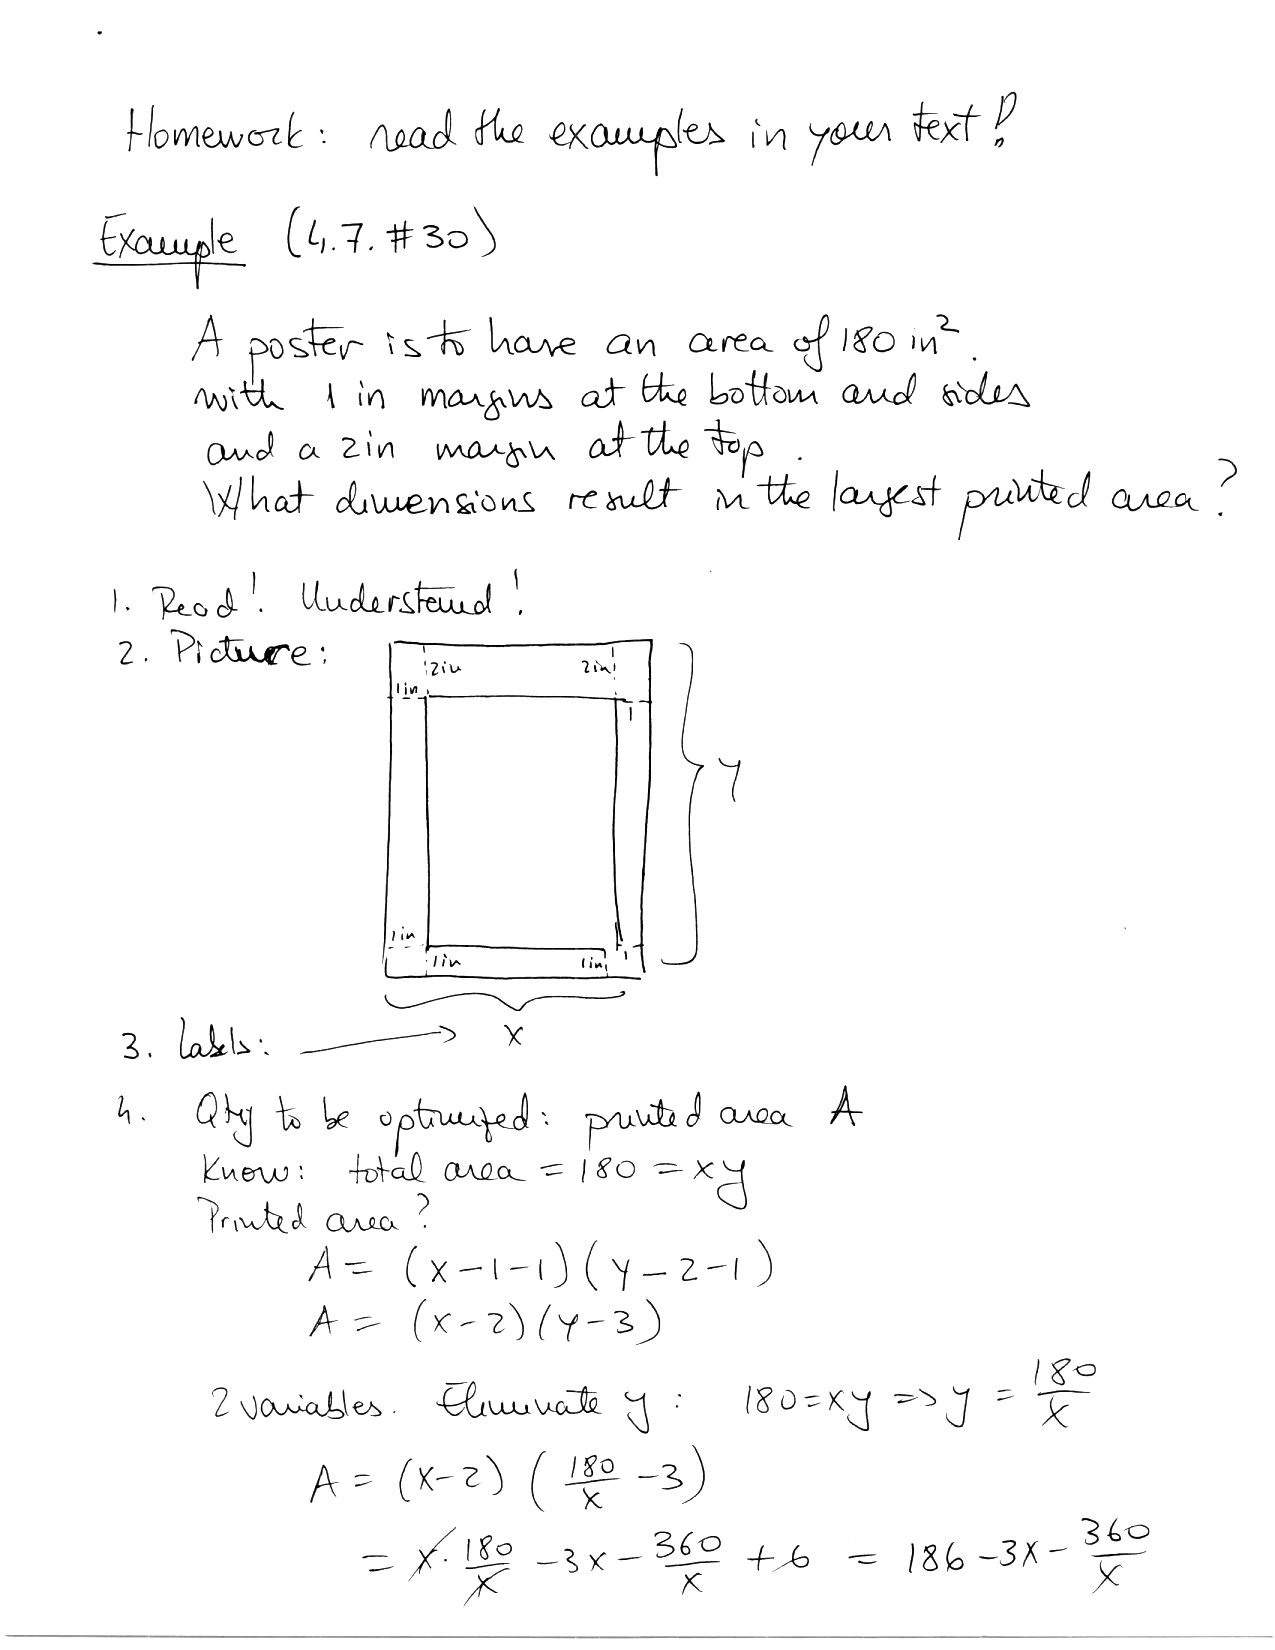 Homework: read the examples in your text!
Example (4.7. #30)
A poster is to have an area of 180 in².
with 1 in margins at the bottom and sides
and a 2in margin at the top.
What dimensions result in the largest printed area?
1. Read! Understand!
2. Picture:
2in 2in
1in
1
y
1in
1in 1in 1
x
3. Labels:
4. Qty to be optimized: printed area A
Know: total area = 180 = xy
Printed area?
A = (x-1-1)(y-2-1)
A = (x-2)(y-3)
2 variables. Eliminate y: 180=xy => y = 180/x
A = (x-2)(180/x -3)
= x·180/x -3x - 360/x +6 = 186 -3x - 360/x